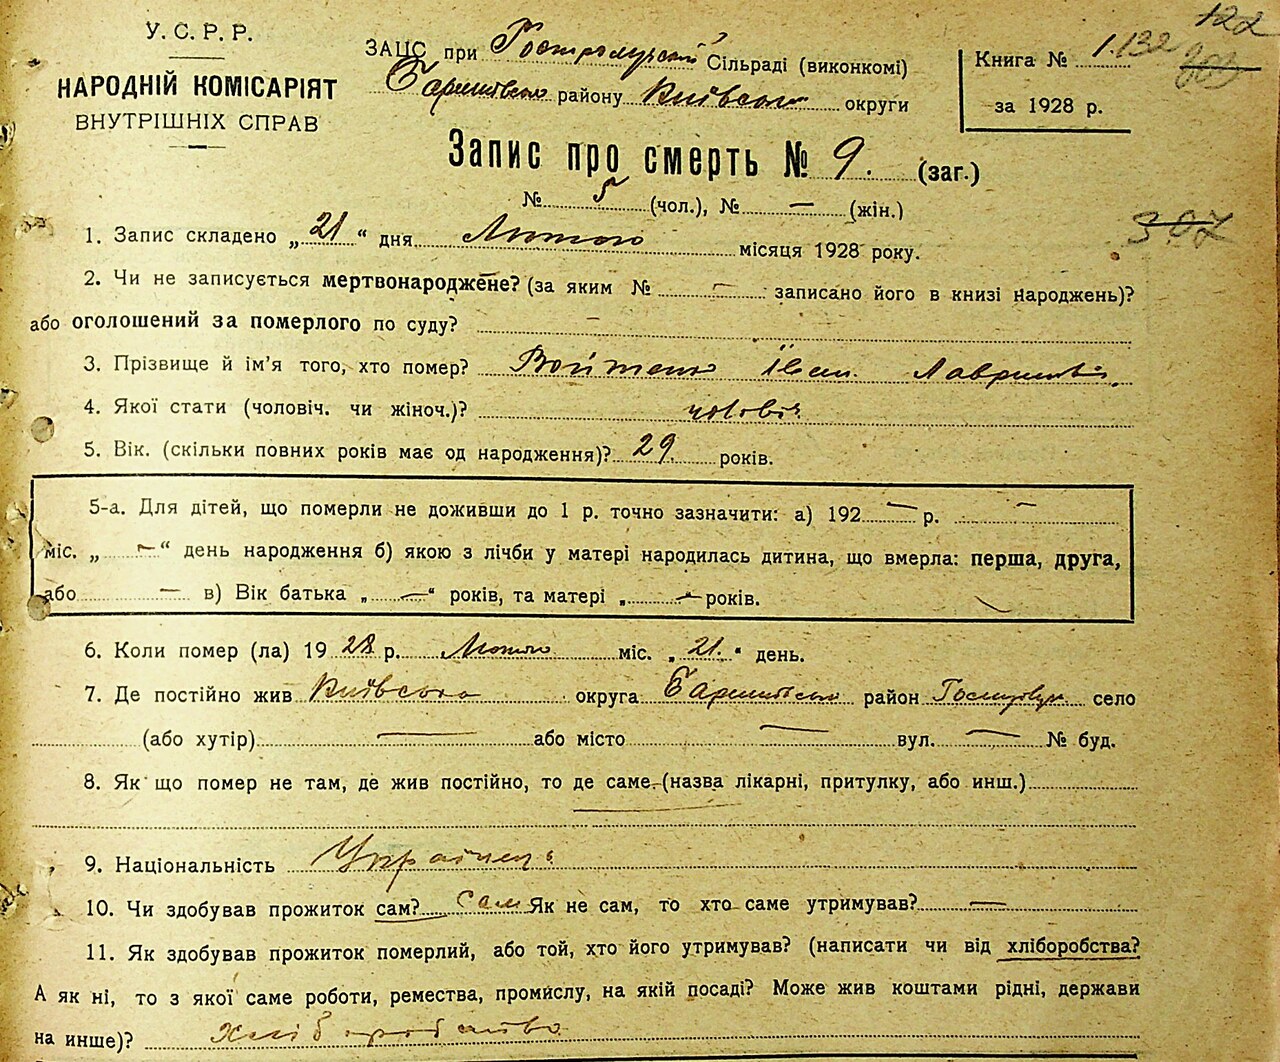 У. С. Р. Р.
НАРОДНІЙ КОМІСАРІЯТ
ВНУТРІШНІХ СПРАВ
ЗАЦС при Сільраді (виконкомі)
Баришівського району Київської округи
Книга № 1.132
за 1928 р.
122
307
Запис про смерть № 9. (заг.)
№ 5 (чол.), № — (жін.)
1. Запис складено „21“ дня Лютого місяця 1928 року.
2. Чи не записується мертвонароджене? (за яким № — записано його в книзі народжень)?
або оголошений за померлого по суду? —
3. Прізвище й ім'я того, хто помер? Войтенко Іван Лаврінов.
4. Якої стати (чоловіч. чи жіноч.)? чоловіч.
5. Вік. (скільки повних років має од народження)? 29 років.
5-а. Для дітей, що померли не доживши до 1 р. точно зазначити: а) 192 — р. —
міс. „ — “ день народження б) якою з лічби у матері народилась дитина, що вмерла: перша, друга,
або — в) Вік батька „ — “ років, та матері „ — років.
6. Коли помер (ла) 1928 р. Лютого міс. „21.“ день.
7. Де постійно жив Київська округа Баришівський район село
(або хутір) — або місто — вул. — № буд.
8. Як що помер не там, де жив постійно, то де саме (назва лікарні, притулку, або инш.)
9. Національність Українець
10. Чи здобував прожиток сам? Сам Як не сам, то хто саме утримував? —
11. Як здобував прожиток померлий, або той, хто його утримував? (написати чи від хліборобства?
А як ні, то з якої саме роботи, ремества, промислу, на якій посаді? Може жив коштами рідні, держави
на инше)? хліборобство